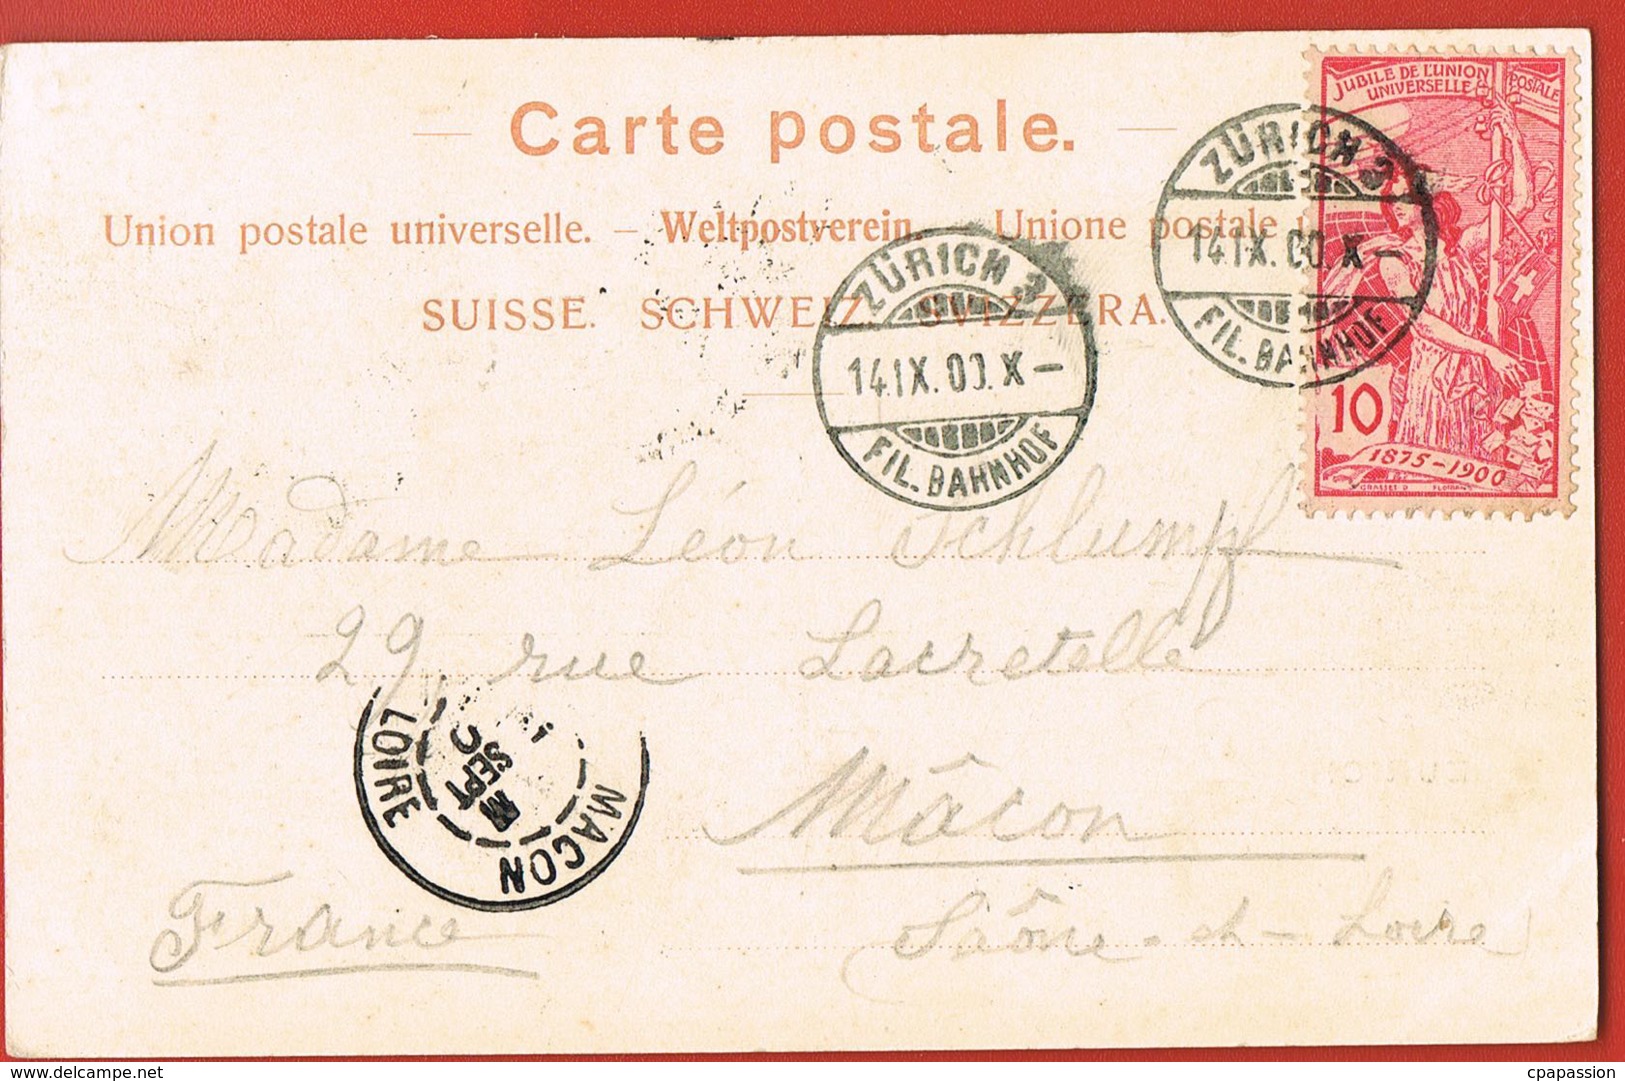 Carte postale.
Union postale universelle. – Weltpostverein. – Unione postale
SUISSE. SCHWEIZ. SVIZZERA.
JUBILE DE L'UNION POSTALE
UNIVERSELLE
10
1875-1900
GRASSET
ZÜRICH 3
14.IX.00.X–
FIL. BAHNHOF
ZÜRICH 3
14.IX.00.X–
FIL. BAHNHOF
Madame Léon Schlumpf
29, rue Lacretelle
Mâcon
Saône-et-Loire
France
MACON
LOIRE
SEPT
cpapassion